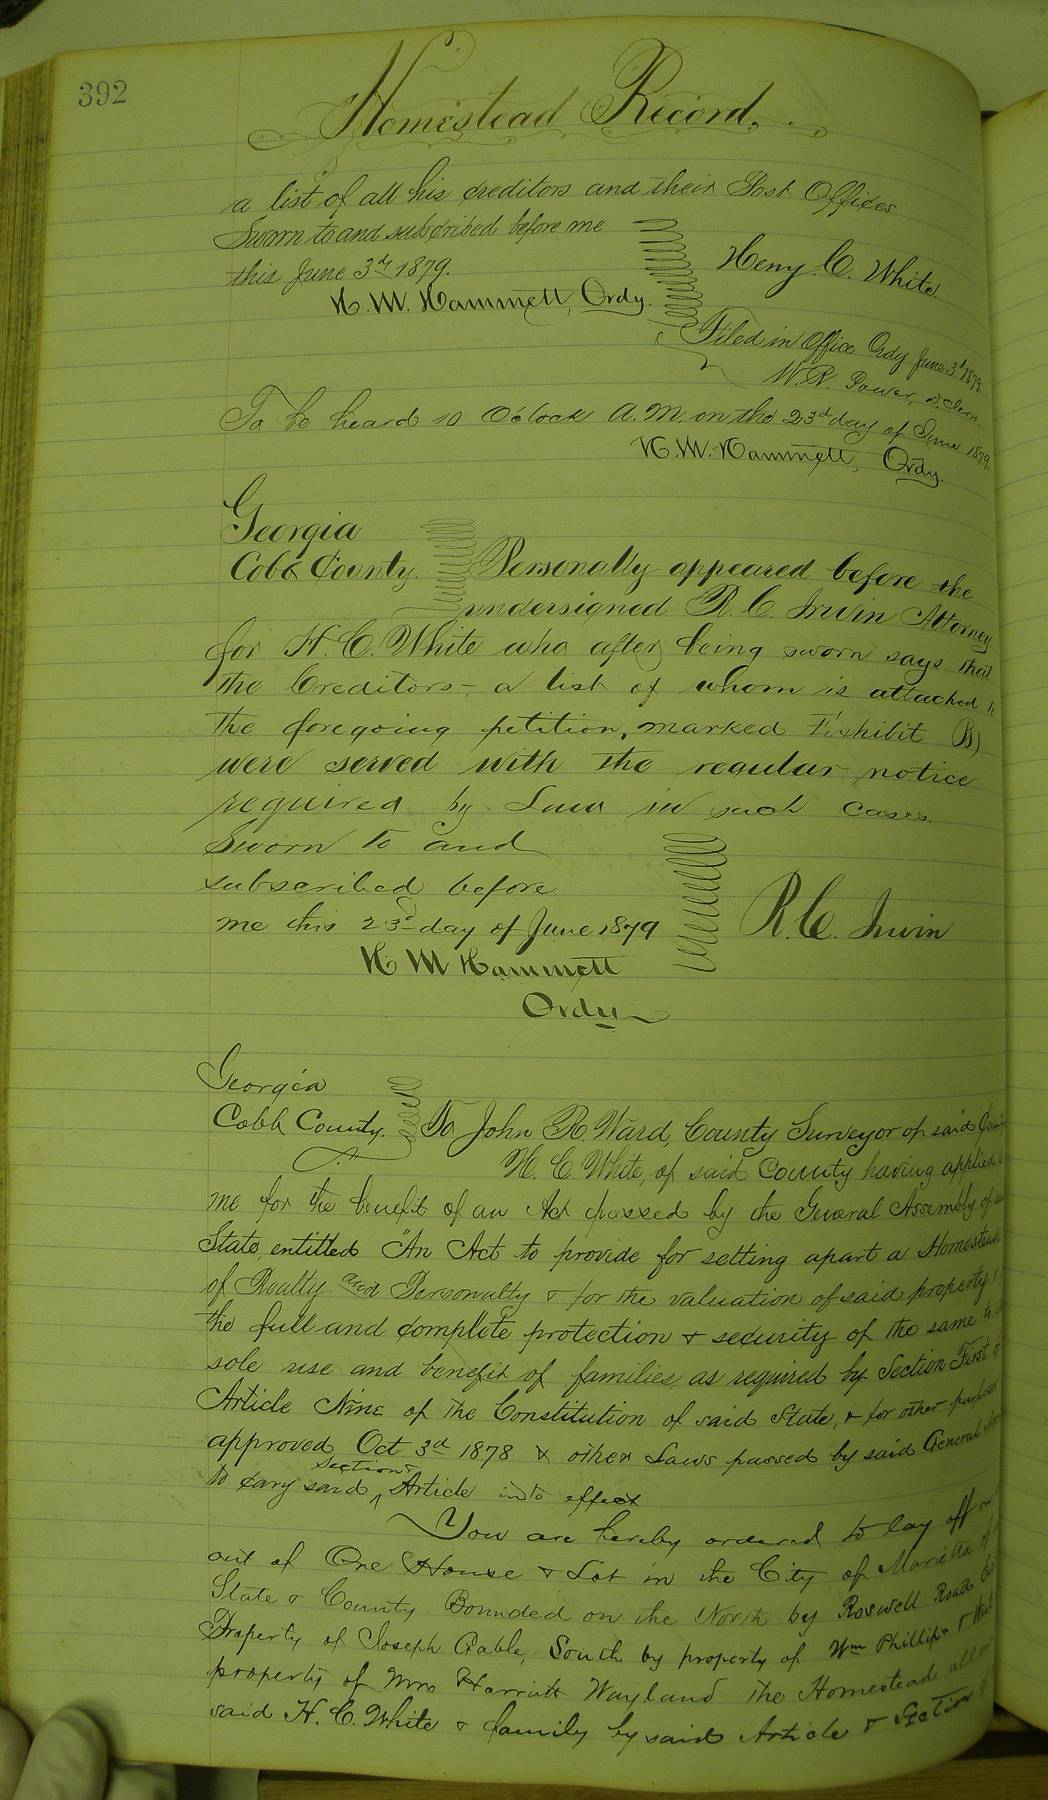 392
Homestead Record.
a list of all his creditors and their Post Offices
Sworn to and subscribed before me
this June 3rd 1879.
Heny. C. White
H. M. Hammett, Ordy.
Filed in Office Ordy June 3d 1879
W. R. Power,
To be heard 10 Oclock A. M. on the 23d day of June 1879.
H. M. Hammett, Ordy.
Georgia
Cobb County. Personally appeared before the
undersigned R. C. Irwin Attorney
for H. C. White who after being sworn says that
the Creditors, a list of whom is attached to
the foregoing petition, marked Exhibit B)
were served with the regular notice
required by Law in such cases.
Sworn to and
subscribed before
me this 23d day of June 1879
R. C. Irwin
H M Hammett
Ordy
Georgia
Cobb County. To John R. Ward, County Surveyor of said
H. C. White, of said County having applied
me for the benefit of an Act passed by the General Assembly of
State, entitled "An Act to provide for setting apart a Homestead
of Realty and Personalty & for the valuation of said property
the full and complete protection & security of the same to
sole use and benefit of families as required by Section First of
Article Nine of the Constitution of said State, & for other purposes
approved Oct 3rd 1878 & other Laws passed by said General
to cary said Section & Article into effect
You are hereby ordered to lay off
out of One House & Lot in the City of Marietta of
State & County Bounded on the North by Roswell Road
Property of Joseph Gable, South by property of Wm Phillips &
property of Mrs Harriett Wayland the Homestead
said H. C. White & family by said Article & Section